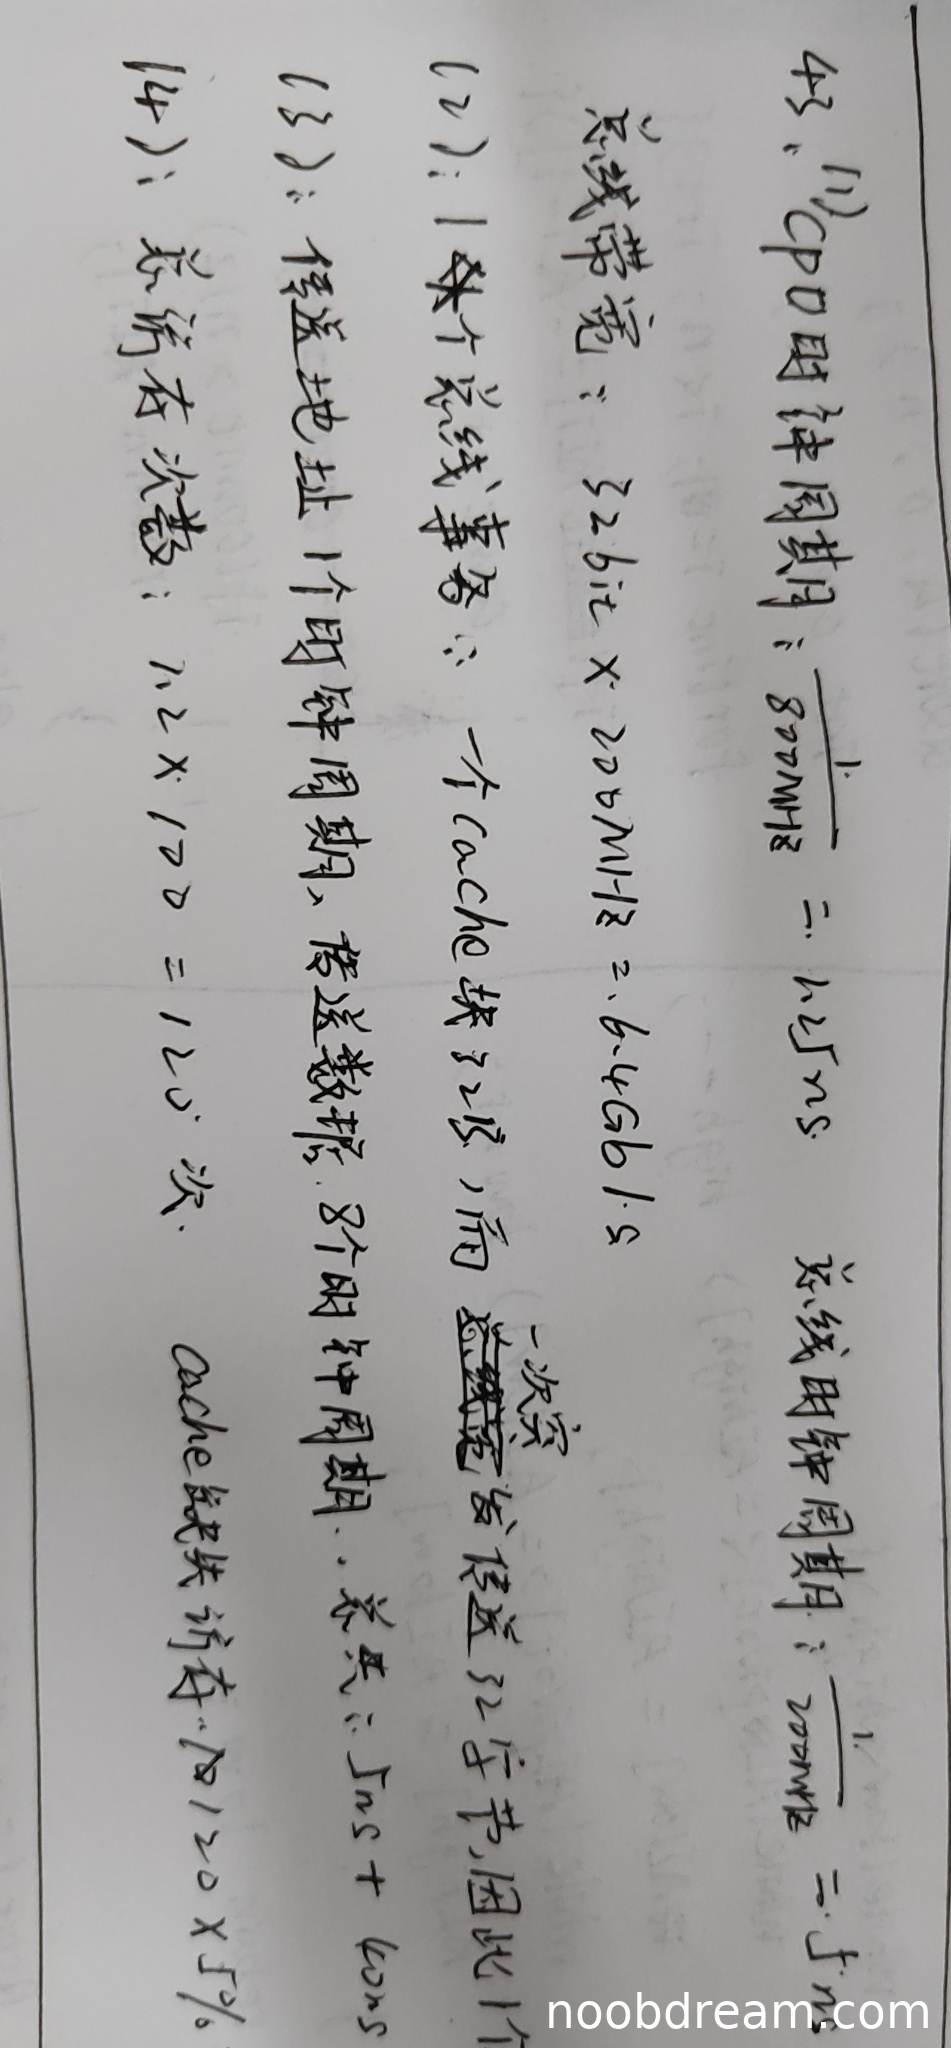 43、(1) CPU时钟周期：1/800MHz = 1.25ns 总线时钟周期：1/200MHz = 5ns
总线带宽：32bit × 200MHz = 6.4Gb/s
一次突
(2)：1个总线事务：一个Cache块32B，而发传送32字节，因此1个
(3)：传送地址1个时钟周期，传送数据8个时钟周期．总共：5ns + 40ns
(4)：总访存次数：1.2 × 100 = 120次． Cache缺失访存：120 × 5%
noobdream.com